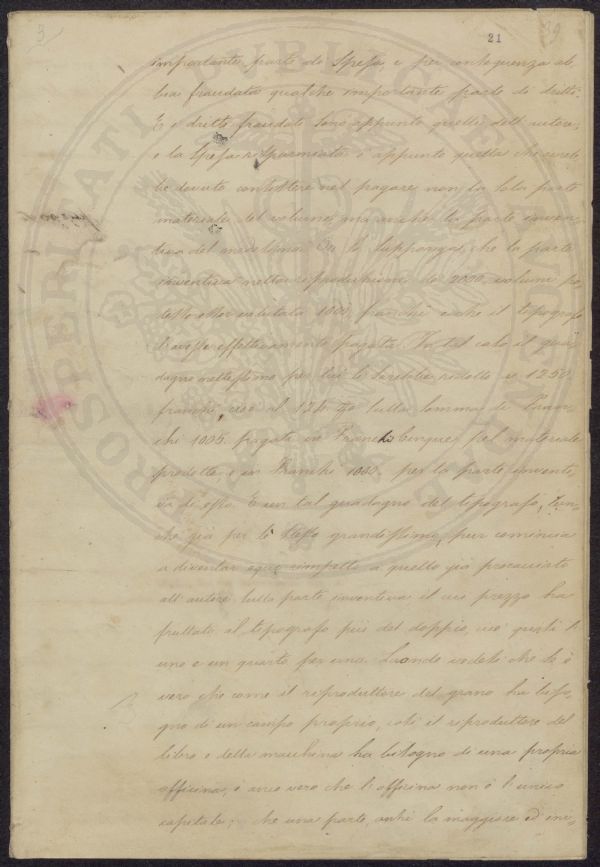 3 21 39
importante parte di Spesa, e per conseguenza ab
bia fraudata qualche importante parte di dritti.
E i dritti fraudati sono appunto quelli dell'autore,
e la Spesa risparmiata è appunto quella che avreb
be dovuto consistere nel pagare non la sola parte
materiale del volume, ma anche la parte inven
tiva del medesimo. Or si supponga, che la parte
inventiva nella riproduzione di 2000 volumi po
tesse esser valutata 1000 franchi e che il tipografo
l'avesse effettivamente pagata. In tal caso il gua
dagno nettissimo per lui si sarebbe ridotto a 1250
franchi, cioè al sulla somma di Fran
chi 1005. pagati in Franchi cinque pel materiale
prodotto, e in Franchi 1000. per la parte inventi
va di esso. E un tal guadagno del tipografo,
che già per se stesso grandissimo, pur comincia
a diventar equo rimpetto a quello già procacciato
all'autore sulla parte inventiva il cui prezzo ha
fruttato al tipografo più del doppio, cioè quasi l'
uno e un quarto per uno. Laonde vedesi che se è
vero che come il riproduttore del grano ha biso,
gno di un campo proprio, così il riproduttore del
libro o della macchina ha bisogno di una propria
officina, è anco vero che l'officina non è l'unico
capitale; che una parte, anche la maggiore ed
PROSPERITATI PUBLICAE AUGENDAE